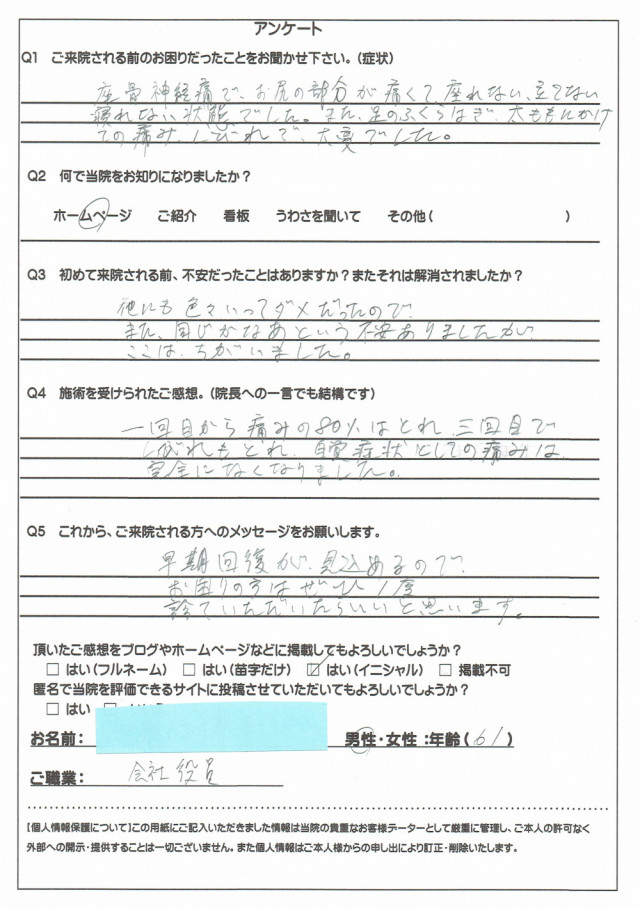 アンケート
Q1 ご来院される前のお困りだったことをお聞かせ下さい。(症状)
座骨神経痛で、お尻の部分が痛くて、座れない、立てない
寝れない状態でした。また、足のふくらはぎ、太ももにかけ
ての痛み、しびれで、大変でした。
Q2 何で当院をお知りになりましたか?
ホームページ ご紹介 看板 うわさを聞いて その他( )
Q3 初めて来院される前、不安だったことはありますか?またそれは解消されましたか?
他にも色々いってダメだったので
また、同じかなあという不安ありましたが
ここは、ちがいました。
Q4 施術を受けられたご感想。(院長への一言でも結構です)
一回目から痛みの80%はとれ、三回目で
しびれもとれ、自覚症状としての痛みは
完全になくなりました。
Q5 これから、ご来院される方へのメッセージをお願いします。
早期回復が、見込めるので、
お困りの方はぜひ1度
診ていただいたらいいと思います。
頂いたご感想をブログやホームページなどに掲載してもよろしいでしょうか?
□ はい(フルネーム) □ はい(苗字だけ) ☑ はい(イニシャル) □ 掲載不可
匿名で当院を評価できるサイトに投稿させていただいてもよろしいでしょうか?
□ はい □
お名前: 男性・女性:年齢(61)
ご職業: 会社役員
【個人情報保護について】この用紙にご記入いただきました情報は当院の貴重なお客様データーとして厳重に管理し、ご本人の許可なく
外部への開示・提供することは一切ございません。また個人情報はご本人様からの申し出により訂正・削除いたします。